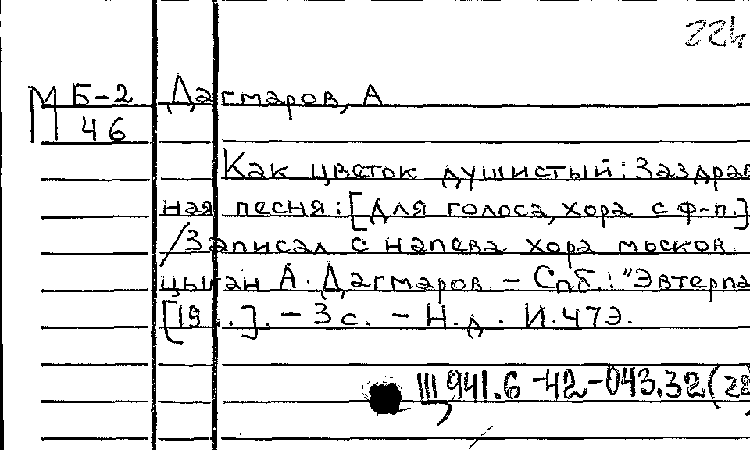 224
М Б-2 Дагмаров, А
46
Как цветок душистый: Заздрав
ная песня: [Для голоса, хора с ф-п.]
/Записал с напева хора москов.
цыган А. Дагмаров - Спб.: "Эвтерпа
[19 ..]. - 3 с. - Н.д. И.473.
Щ941.6-42-043.32(28